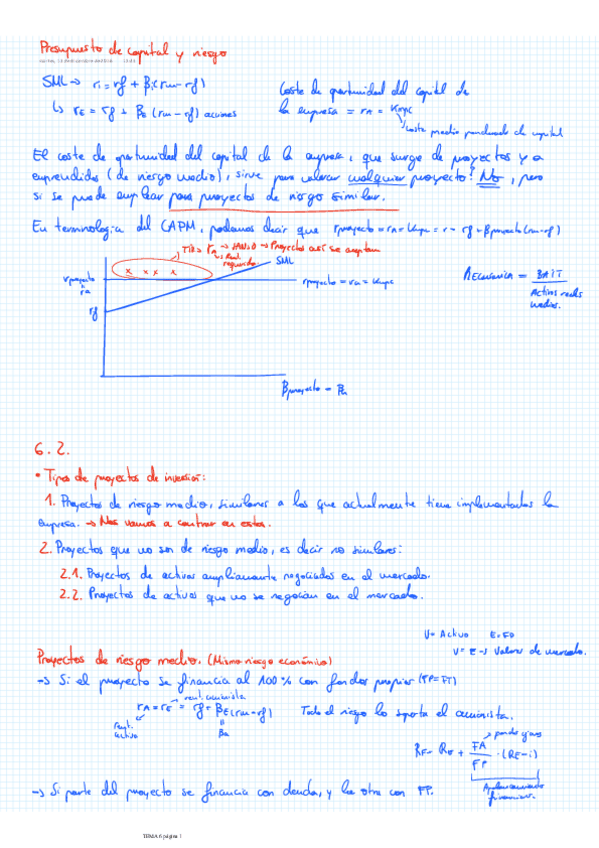 Presupuesto de capital y riesgo
SML → ri = rf + βi (rm - rf)
↳ rE = rf + βE (rm - rf) acciones
Coste de oportunidad del capital de
la empresa = rA = Kmpc
coste medio ponderado de capital
El coste de oportunidad del capital de la empresa, que surge de proyectos ya
emprendidos (de riesgo medio), sirve para valorar cualquier proyecto? No, pero
si se puede emplear para proyectos de riesgo similar.
En terminología del CAPM, podemos decir que rproyecto = rA = Kmpc = r = rf + βproyecto (rm - rf)
TIR > rA → VAN > 0 → Proyectos así se aceptan
Rent. requerida
SML
x x x x
rproyecto
rA
rproyecto = rA = Kmpc
rf
βproyecto = βA
REconómica = BAIT
Activos reales
medios.
6.2.
• Tipos de proyectos de inversión:
1. Proyectos de riesgo medio, similares a los que actualmente tiene implementados la
empresa. → Nos vamos a centrar en estos.
2. Proyectos que no son de riesgo medio, es decir no similares:
2.1. Proyectos de activos ampliamente negociados en el mercado.
2.2. Proyectos de activos que no se negocian en el mercado.
V = Activo E + D
V = E → Valores de mercado.
Proyectos de riesgo medio. (Mismo riesgo económico)
→ Si el proyecto se financia al 100% con fondos propios (FP = PT)
rent. accionista
rA = rE = rf + βE (rm - rf)
rent. activo
βA
Todo el riesgo lo soporta el accionista.
RF = RE + FA/FP · (RE - i)
Apalancamiento
financiero.
→ Si parte del proyecto se financia con deuda, y la otra con FP.
TEMA 6 página 1